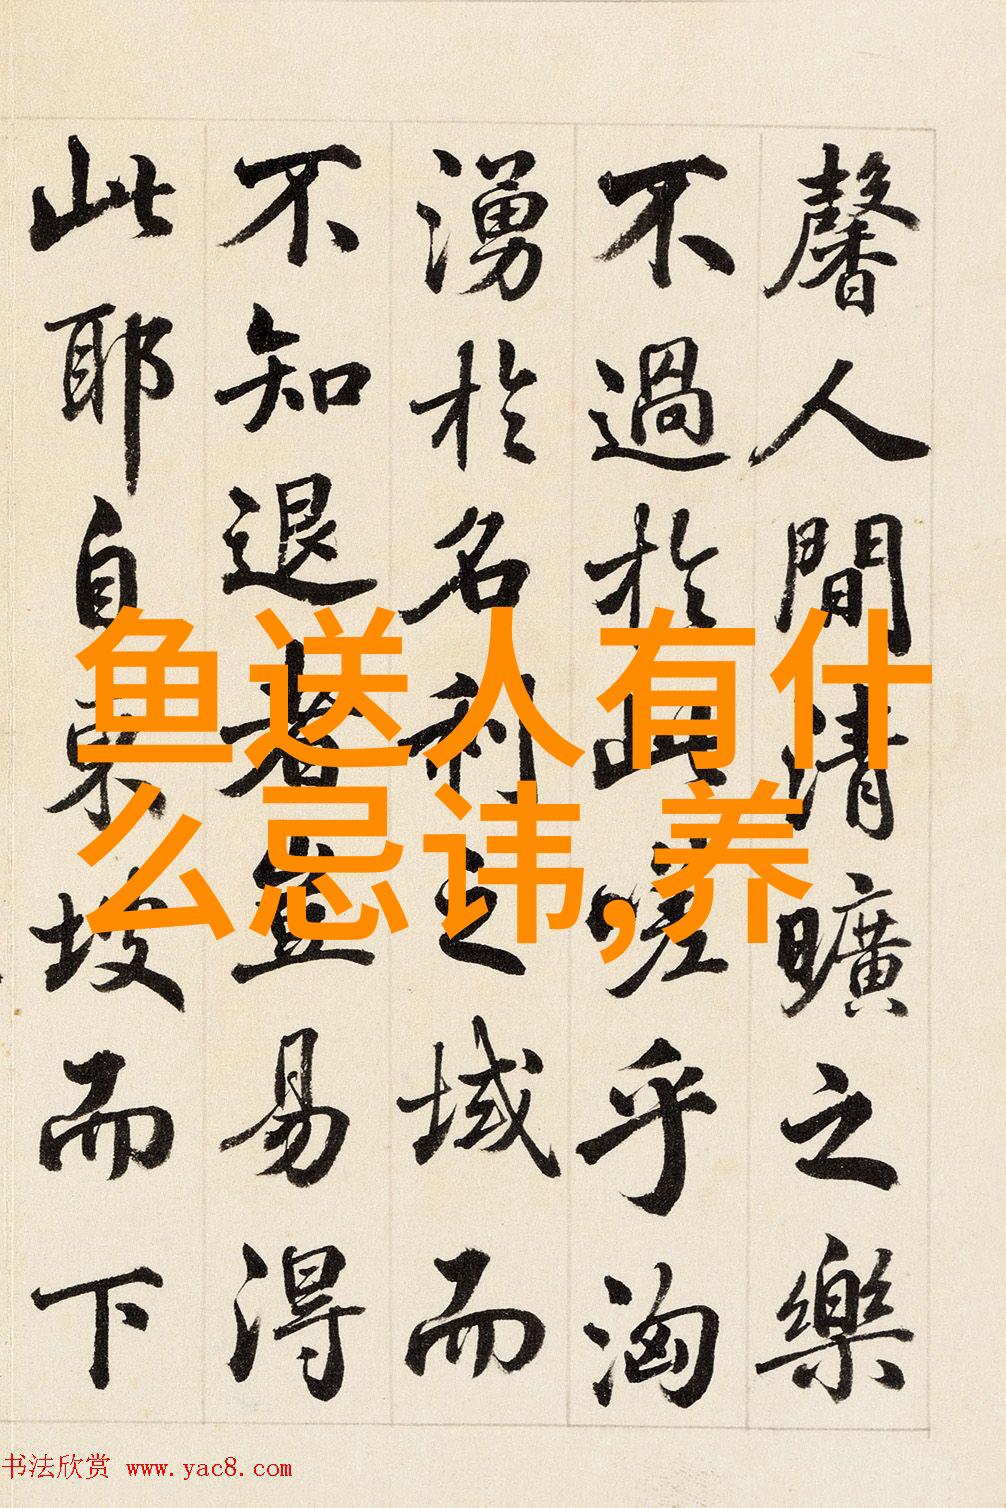 馨人間清曠之樂
不過於此嗟乎洶
湧於名利之域而
不知退者豈易得
此耶自東坡而下
鱼送人有什
么忌讳,养
书法欣赏 www.yac8.com